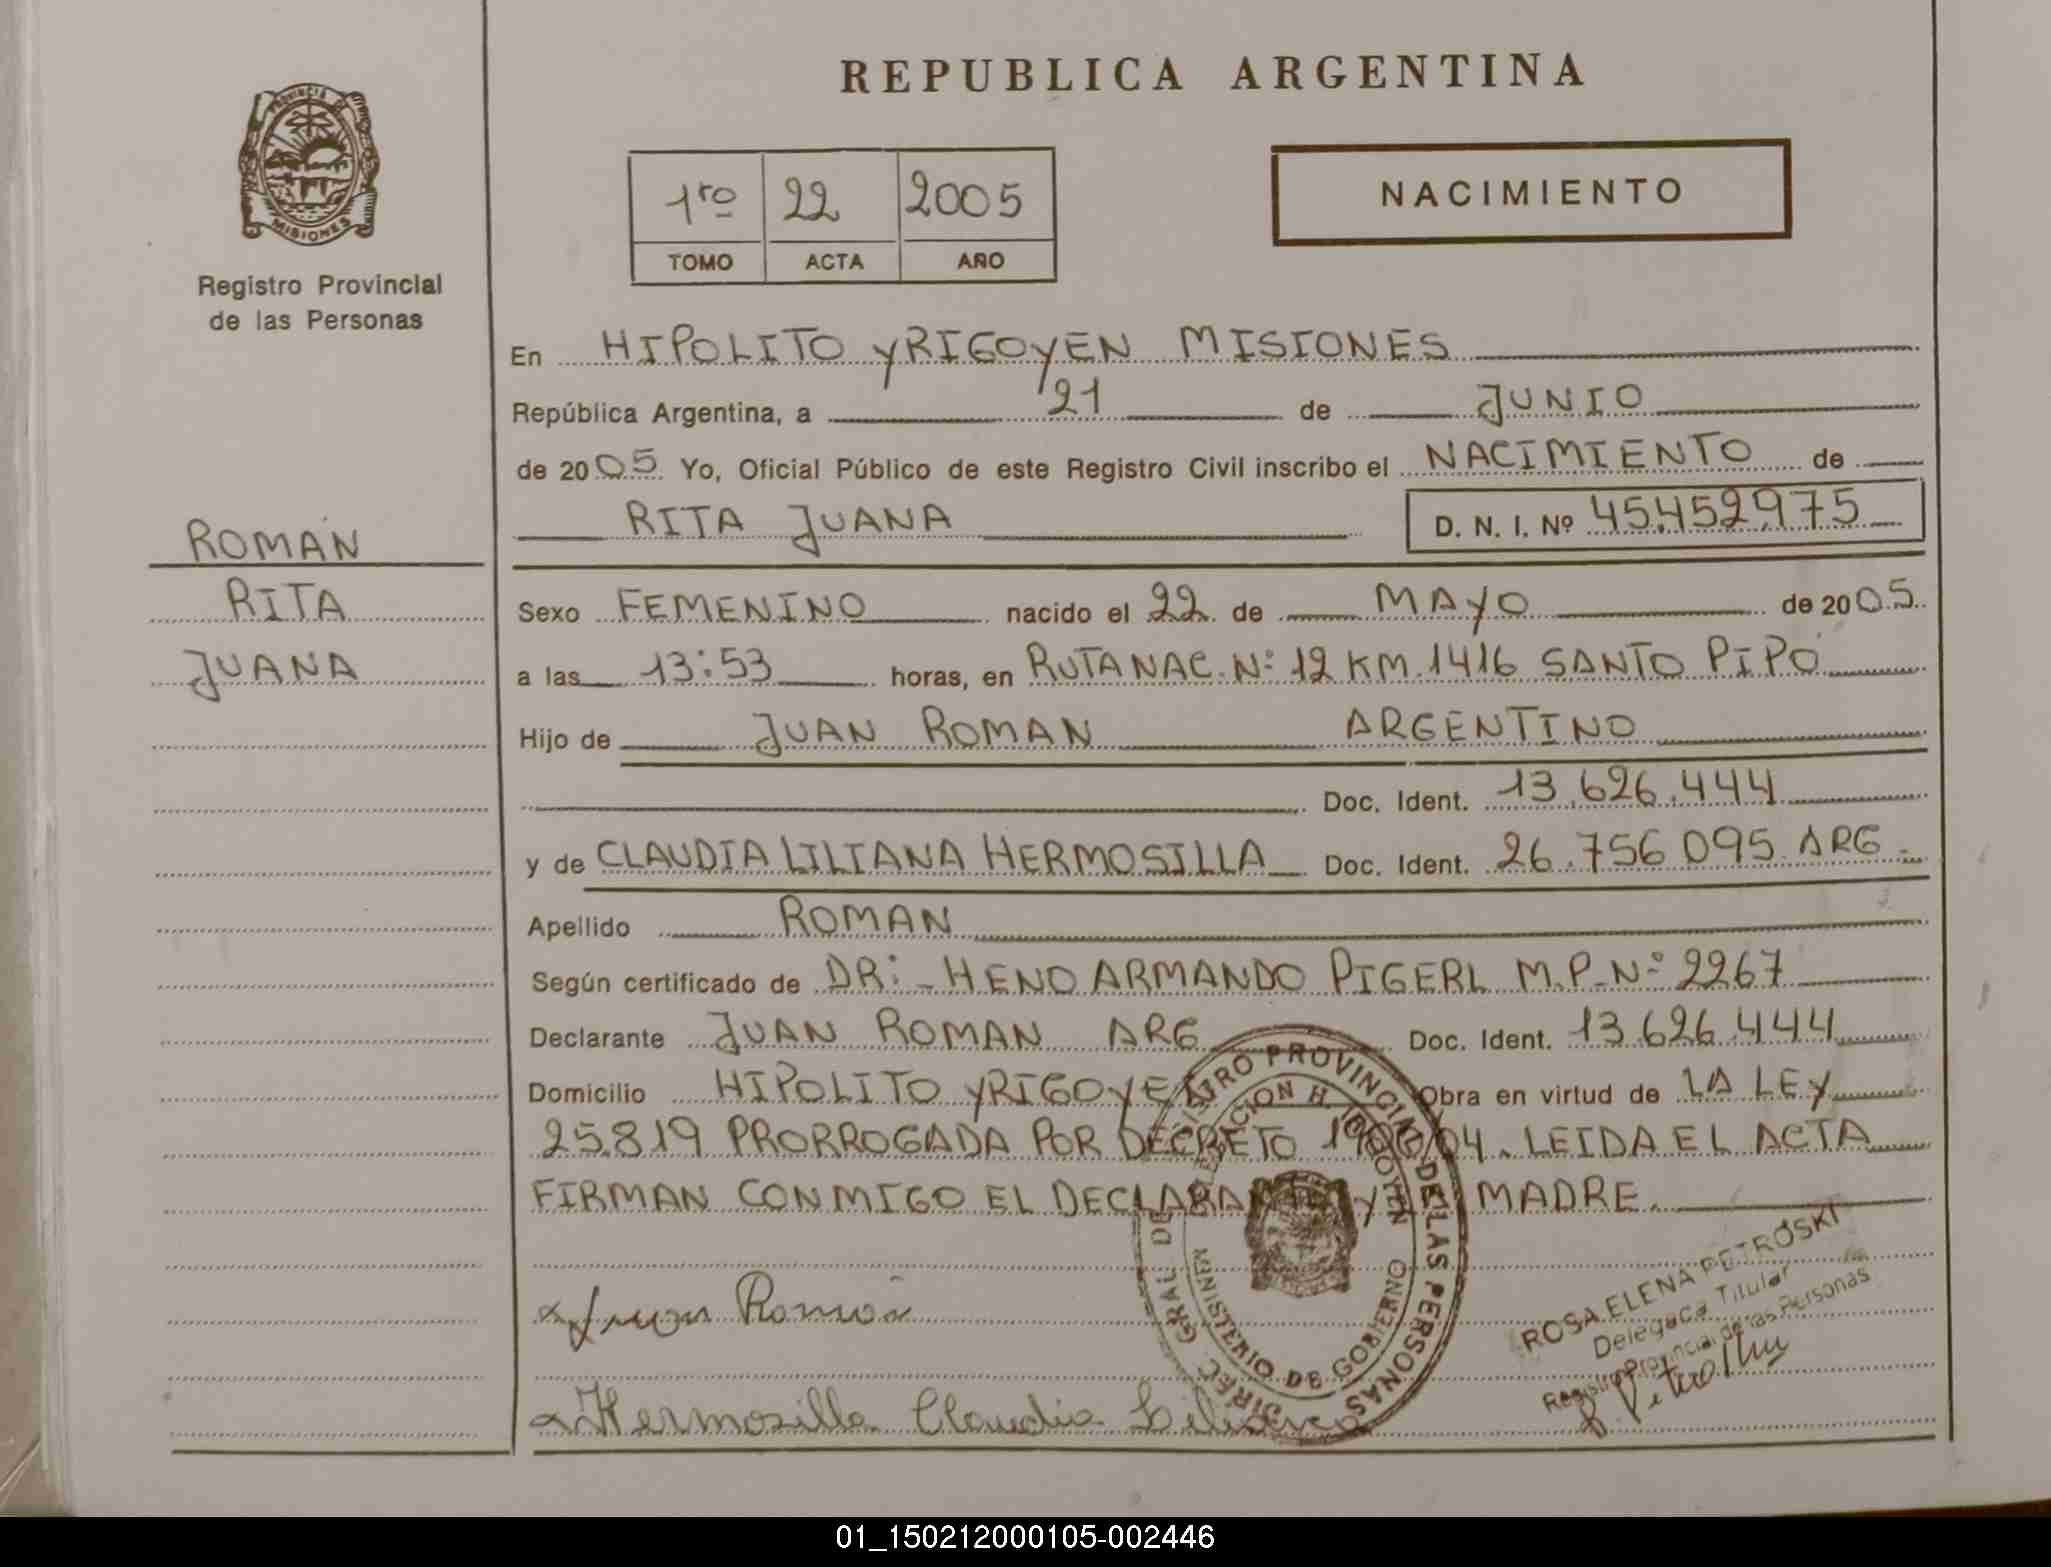 REPUBLICA ARGENTINA
PROVINCIA DE
MISIONES
Registro Provincial
de las Personas
1ro 22 2005
TOMO ACTA AÑO
NACIMIENTO
En HIPOLITO YRIGOYEN MISIONES
República Argentina, a 21 de JUNIO
de 2005 Yo, Oficial Público de este Registro Civil inscribo el NACIMIENTO de
RITA JUANA D. N. I. Nº 45.452.975
ROMAN
RITA
JUANA
Sexo FEMENINO nacido el 22 de MAYO de 2005
a las 13:53 horas, en RUTA NAC. Nº 12 KM. 1416 SANTO PIPÓ
Hijo de JUAN ROMAN ARGENTINO
Doc. Ident. 13.626.444
y de CLAUDIA LILIANA HERMOSILLA Doc. Ident. 26.756.095 ARG.
Apellido ROMAN
Según certificado de DR:- HENO ARMANDO PIGERL M.P-Nº 2267
Declarante JUAN ROMAN ARG Doc. Ident. 13.626.444
Domicilio HIPOLITO YRIGOYEN Obra en virtud de LA LEY
25.819 PRORROGADA POR DECRETO /04. LEIDA EL ACTA
FIRMAN CONMIGO EL DECLARANTE Y LA MADRE.
Juan Roman
Hermosilla Claudia Liliana
DIREC. GRAL DE REGISTRO PROVINCIAL DE LAS PERSONAS
DELEGACION H. IRIGOYEN
MINISTERIO DE GOBIERNO
ROSA ELENA PETROSKI
Delegada Titular
Registro Provincial de las Personas
01_150212000105-002446